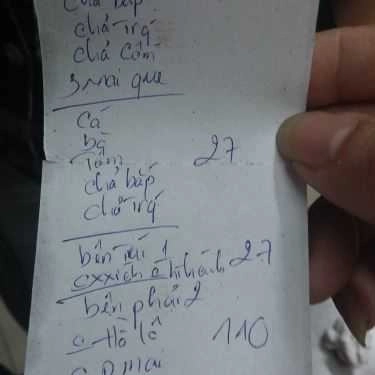 chả bắp
chả trứ
chả cốm
3 mai que
cá
bò
tôm 27
chả bắp
chả trứ
bên trái 1
27
bên phải 2
Hồ lô 110
mai